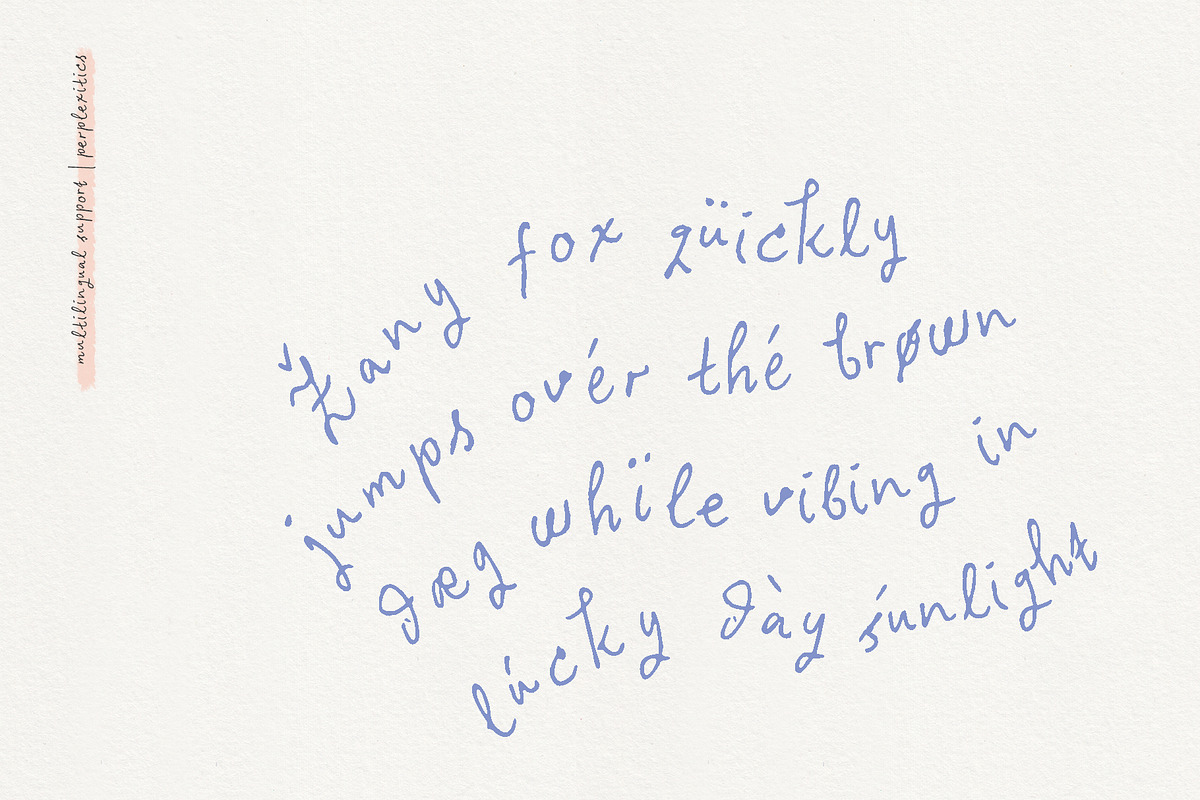 multilingual support | perplexities
Žany fox qüickly
jumps ovér thé brøwn
dæg whïle vibing in
lúcky dày śunlight